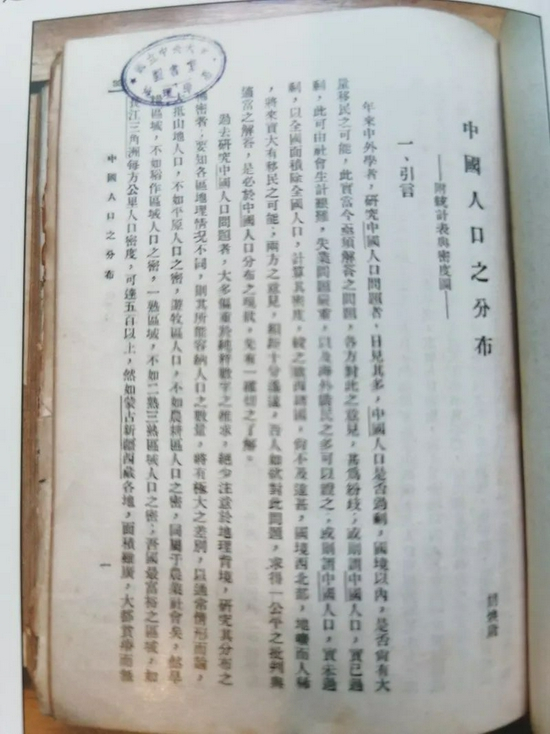 中國人口之分布
——附統計表與密度圖——
胡煥庸
一、引言
年來中外學者，研究中國人口問題者，日見其多，中國人口是否過剩，國境以內，是否尙有大
量移民之可能，此實當今亟須解答之問題，各方對此之意見，甚為紛歧；或則謂中國人口，實已過
剩，此可由社會生計艱難，失業問題嚴重，以及海外僑民之多可以證之，或則謂中國人口，實未過
剩，以全國面積除全國人口，計算其密度，較之歐西諸國，尙不及遠甚，國境西北部，地曠而人稀
，將來實大有移民之可能；兩方之意見，相距十分遙遠，吾人如欲對此問題，求得一公平之批判與
適當之解答，是必於中國人口分布之現狀，先有一種切之了解。
過去研究中國人口問題者，大多偏重於純粹數字之推求，絕少注意於地理背境，研究其分布之
稀密者；要知各區地理情況不同，則其所能容納人口之數量，將有極大之差別，以通常情形而論，
抵山地人口，不如平原人口之密，遊牧區人口，不如農耕區人口之密，同屬于農業社會矣，然旱
區域，不如稻作區域人口之密，一熟區域，不如二熟三熟區域人口之密；吾國最富裕之區域，如
長江三角洲每方公里人口密度，可達五百以上，然如蒙古新疆西藏各地，面積雖廣，大都貧瘠而
中國人口之分布
一